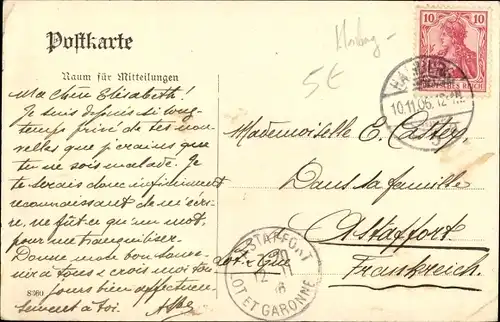 Postkarte
Raum für Mitteilungen
Ma chère Elisabeth!
Je suis depuis si long-
temps privé de tes nou-
velles que je crains que
tu ne sois malade. Je
te serais donc infiniment
reconnaissant de m'écri-
re, ne fût-ce qu'un mot,
pour me tranquilliser.
Donne mon bon souve-
nir à tous & crois moi tou
jours bien affectueu-
sement à toi.
8360
5€
10
10
DEUTSCHES REICH
10.11.06. 12-1
Mademoiselle E. Castex
Dans sa famille
Astaffort
Lot & Gar
Frankreich
ASTAFFORT
12 - 11
LOT ET GARONNE